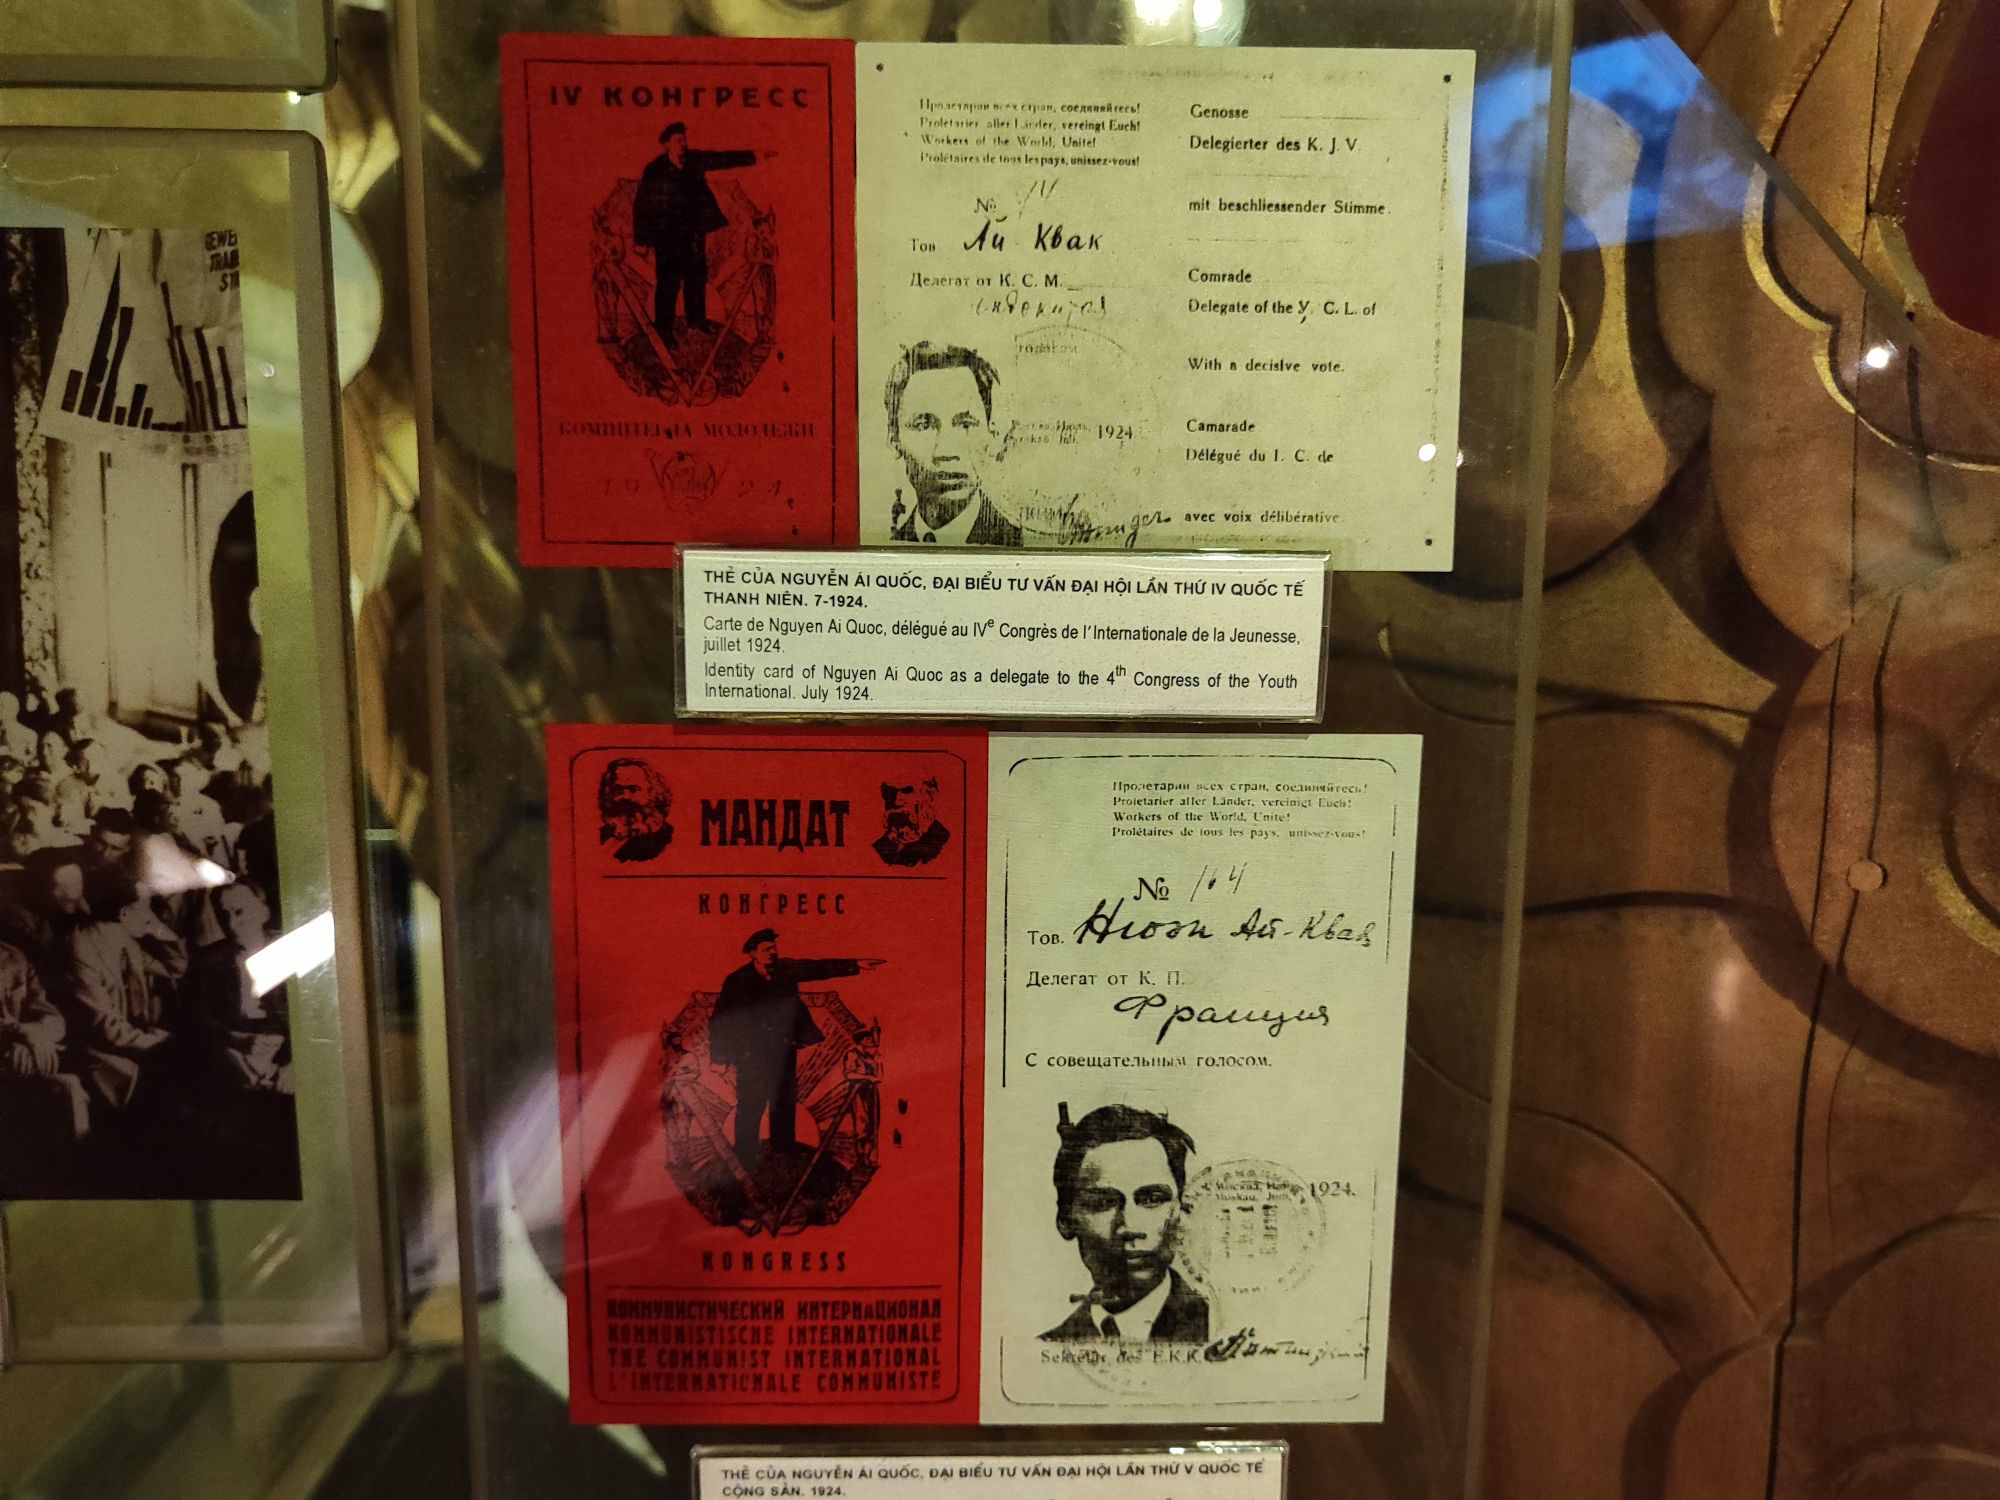 GEWE
TRA
ST
IV КОНГРЕСС
КОМИНТЕРНА МОЛОДЕЖИ
192
Пролетарии всех стран, соединяйтесь!
Proletarier aller Länder, vereingt Euch!
Workers of the World, Unite!
Prolétaires de tous les pays, unissez-vous!
№
Тов Ай Квак
Делегат от К. С. М.
1924
Genosse
Delegierter des K. J. V.
mit beschliessender Stimme.
Comrade
Delegate of the Y. C. L. of
With a decisive vote.
Camarade
Délégué du I. C. de
avec voix délibérative.
THẺ CỦA NGUYỄN ÁI QUỐC, ĐẠI BIỂU TƯ VẤN ĐẠI HỘI LẦN THỨ IV QUỐC TẾ
THANH NIÊN. 7-1924.
Carte de Nguyen Ai Quoc, délégué au IVe Congrès de l'Internationale de la Jeunesse,
juillet 1924.
Identity card of Nguyen Ai Quoc as a delegate to the 4th Congress of the Youth
International. July 1924.
МАНДАТ
КОНГРЕСС
KONGRESS
КОММУНИСТИЧЕСКИЙ ИНТЕРНАЦИОНАЛ
KOMMUNISTISCHE INTERNATIONALE
THE COMMUNIST INTERNATIONAL
L'INTERNATIONALE COMMUNISTE
Пролетарии всех стран, соединяйтесь!
Proletarier aller Länder, vereinigt Euch!
Workers of the World, Unite!
Prolétaires de tous les pays, unissez-vous!
№ 164
Тов. Нюэн Ай-Квак
Делегат от К. П.
Франция
С совещательным голосом.
Moskau, 1924.
Sekretär des E.K.K.
THẺ CỦA NGUYỄN ÁI QUỐC, ĐẠI BIỂU TƯ VẤN ĐẠI HỘI LẦN THỨ V QUỐC TẾ
CỘNG SẢN. 1924.